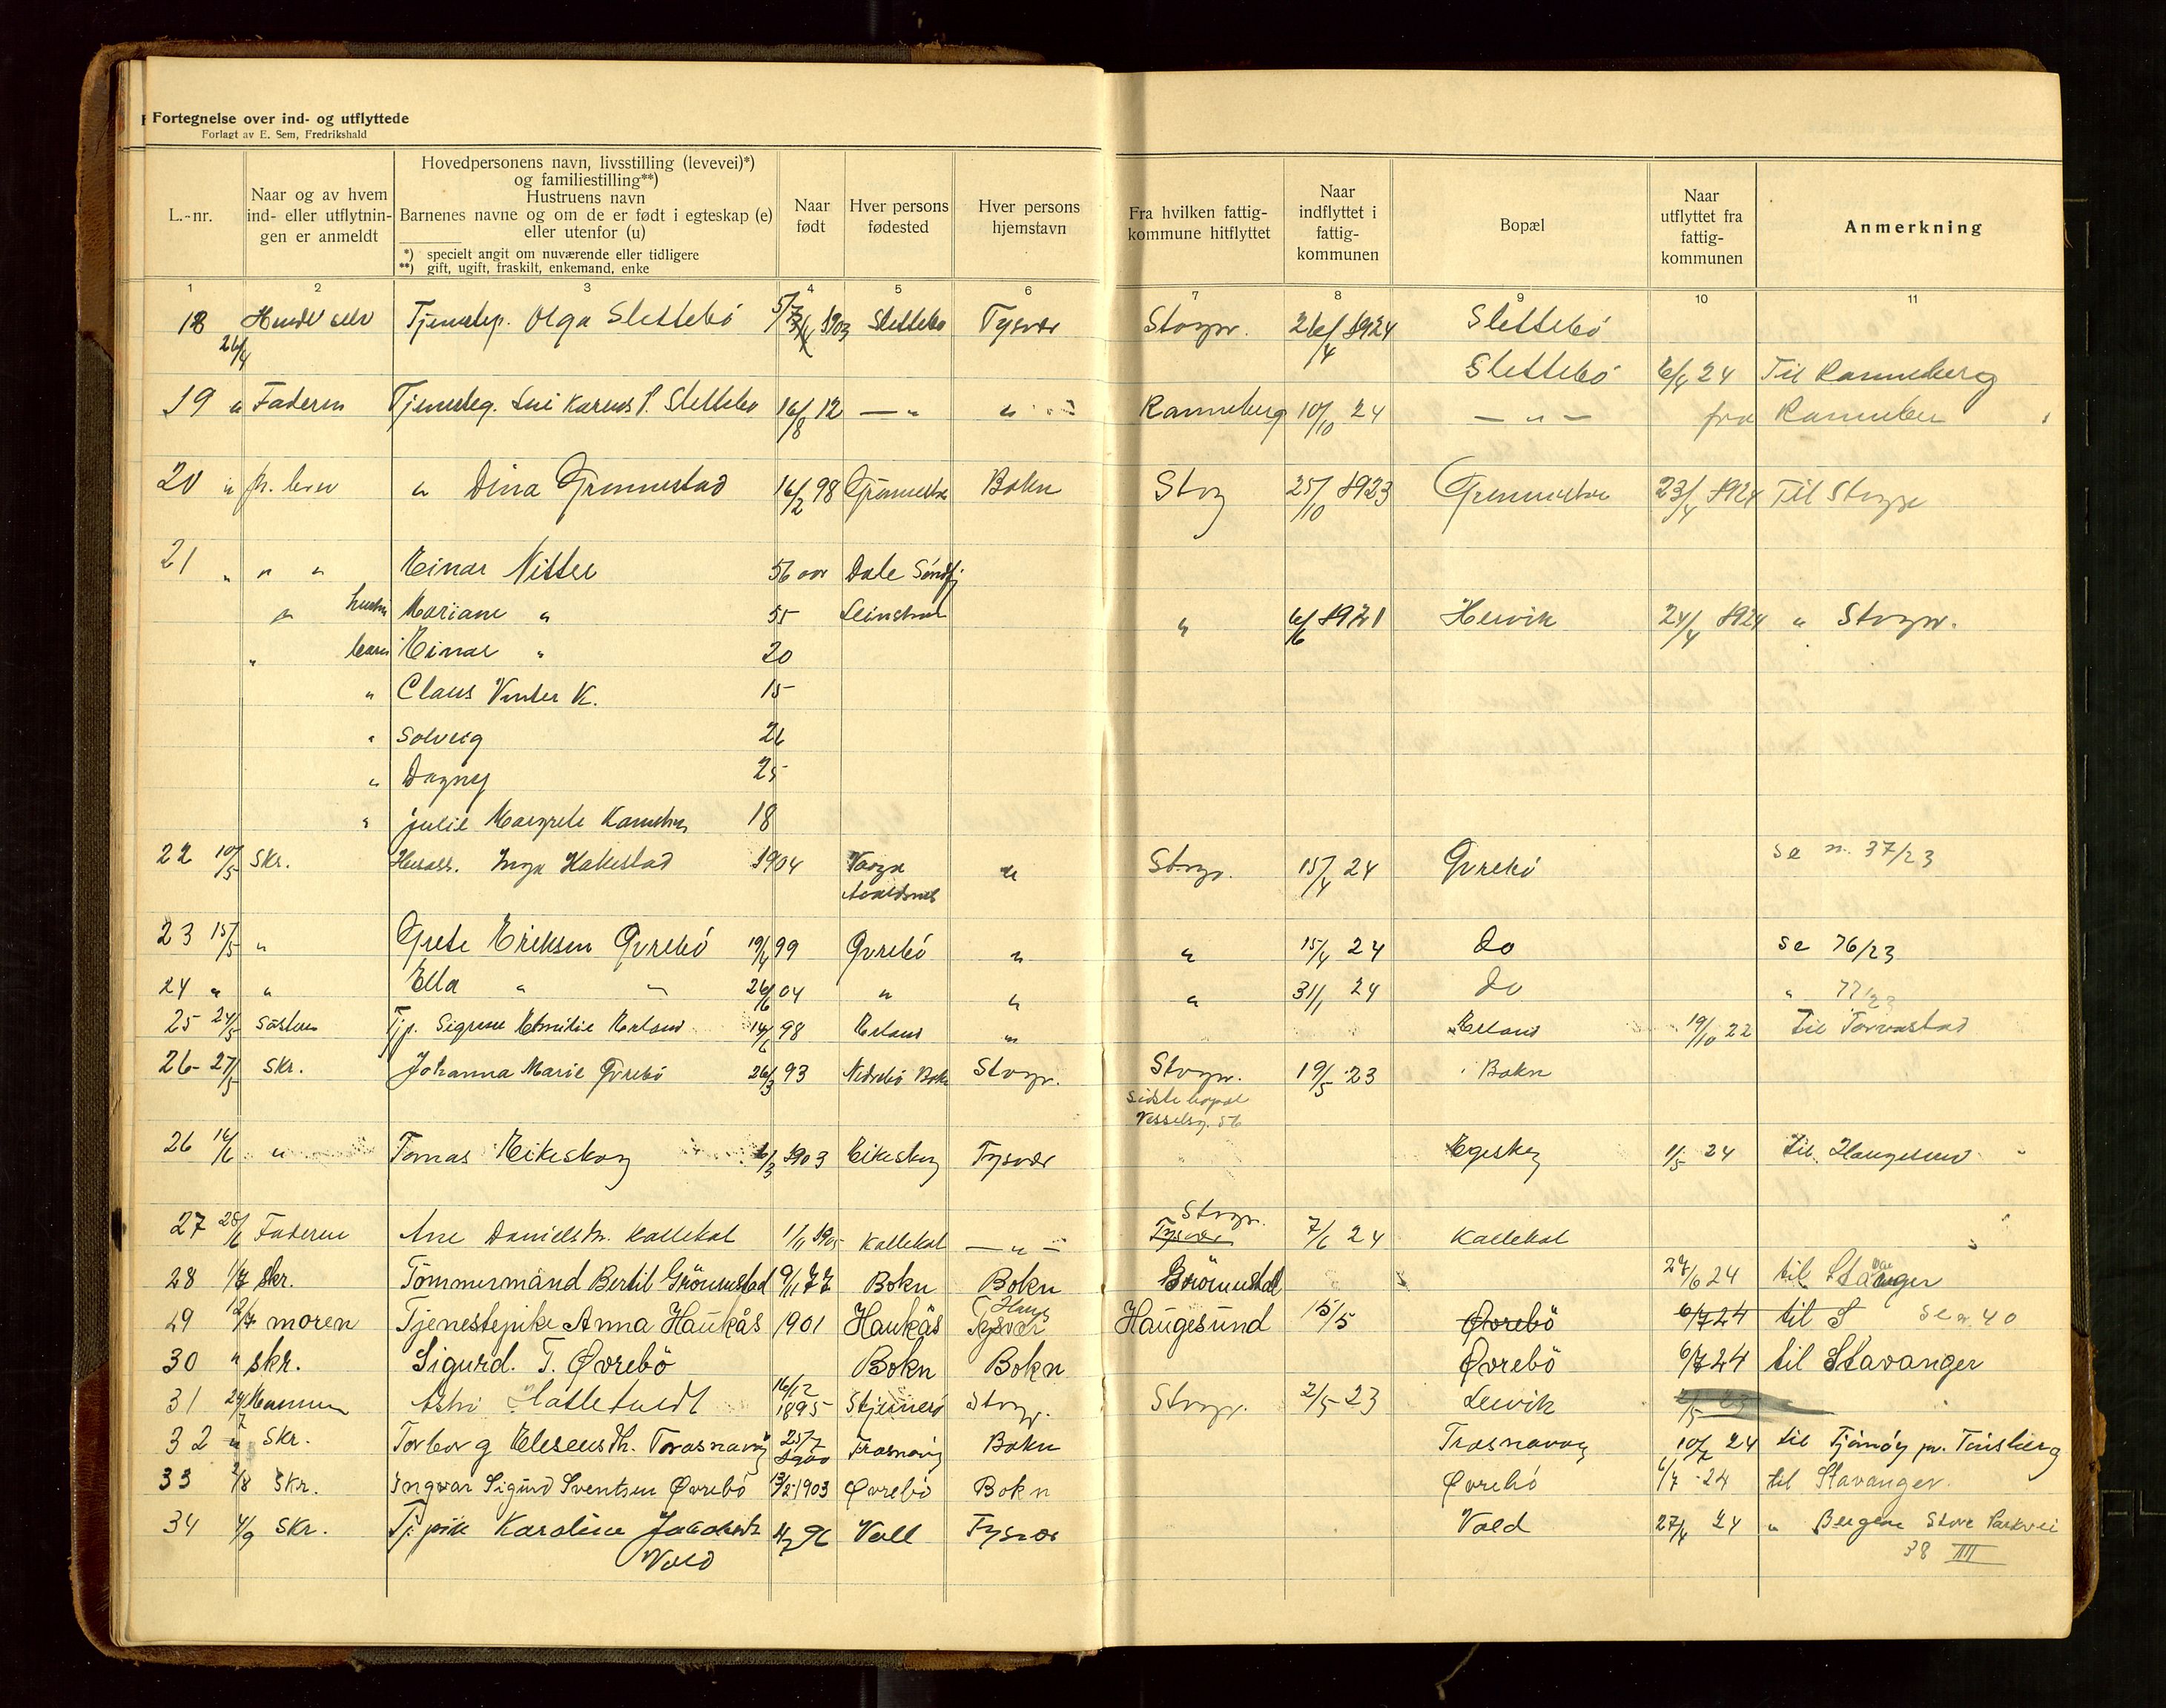 Fortegnelse over ind- og utflyttede
Forlagt av E. Sem, Fredrikshald
L.-nr.
Naar og av hvem
ind- eller utflytnin-
gen er anmeldt
Hovedpersonens navn, livsstilling (levevei)*)
og familiestilling**)
Hustruens navn
Barnenes navne og om de er født i egteskap (e)
eller utenfor (u)
*) specielt angit om nuværende eller tidligere
**) gift, ugift, fraskilt, enkemand, enke
Naar
født
Hver persons
fødested
Hver persons
hjemstavn
Fra hvilken fattig-
kommune hitflyttet
Naar
indflyttet i
fattig-
kommunen
Bopæl
Naar
utflyttet fra
fattig-
kommunen
Anmerkning
1 2 3 4 5 6 7 8 9 10 11
18 26/4 Olga Slettebö 1903 Slettebö Tysvær Stvgr. 26/4 1924 Slettebö
Slettebö 6/4 24 Til Ranneberg
19 " Faderen Slettebö 16/8 12 — " " Ranneberg 10/10 24 — " — fra
20 " pr. brev " Dina Grönnestad 16/2 98 Bokn Stvg 25/10 1923 23/4 1924 Til
21 " " " Einar Nitter 56 aar Dale
" hustru Mariane " 55 " 6/6 1921 Hervik 24/4 1924 " Stvgr.
" barn Einar " 20
" Claus Vinter K. 15
" Solveig 26
" Dagny 25
" Julie Margrete 18
22 10/5 Skr. Inga Hakestad 1904 " Stvgr. 15/4 24 Övrebö se n. 37/23
Avaldsnes
23 15/5 " Grete Eriksen Övrebö 19/4 99 Övrebö " " 15/4 24 Do se 76/23
24 " " Ella " " 26/6 04 " " " 31/1 24 Do " 77/23
25 24/5 Söster Tjp. Emilie Erland 14/6 98 Erland " Erland 19/10 22 til Torvastad
26 27/5 Skr. Johanna Marie Övrebö 26/3 93 Nedrebö Bokn Stvgr. Stvgr. 19/5 23 Bokn
sidste bopæl
26 16/6 " Tomas Eikeskog 1903 Eikeskog Tysvær 1/5 24 til Haugesund
27 28/6 Faderen Ane Kallekal 1/11 1905 Kallekal — " — Stvgr.
Tysvær 7/6 24 Kallekal
28 1/7 skr. Tömmermand Bertil Grönnestad 9/11 77 Bokn Bokn Grönnestad 27/6 24 til Stavanger
29 12/7 moren Tjenestepike Anna Haukås 1901 Haukås Tysvær Haugesund 15/5 Øvrebö 6/7 24 til S 40
30 " skr. Sigurd. T. Øvrebö Bokn Bokn Øvrebö 6/7 24 til Stavanger
31 24/7 16/12 1895 Stvgr. Stvgr. 2/5 23
32 " Skr. Torborg 25/7 1900 Bokn 10/7 24 til Tjömöy pr. Tönsberg
33 2/8 Skr. Ingvar Sigurd Sventsen Øvrebö 13/2 1903 Øvrebö Bokn Øvrebö 6/7 24 til Stavanger.
34 4/9 Skr. Tj. pik Karoline Vall Tysvær Vold 27/4 24 " Bergen Store Parkvei
Vold 38 III